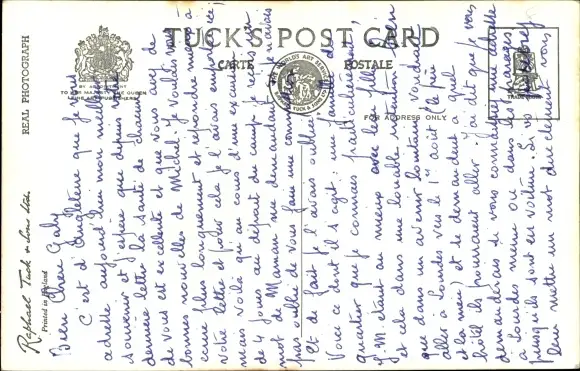 TUCK'S POST CARD
CARTE POSTALE
FOR ADDRESS ONLY
REAL PHOTOGRAPH
BY APPOINTMENT
TO HER MAJESTY THE QUEEN
TRADE MARK
Raphael Tuck & Sons Ltd.
Printed in England
Bien chère Gaby
C'est d'Angleterre que je vous
adresse aujourd'hui mon meilleur
souvenir et j'espère que depuis votre
dernière lettre la santé de chacun
de vous est excellente et que vous avez de
bonnes nouvelles de Michel. Je voulais vous
écrire plus longuement et répondre mieux à
votre lettre et pour cela je l'avais emportée
mais voilà qu'au cours d'une excursion
de 4 jours au départ du camp, je reçois un
mot de Maman me demandant si je n'avais
pas oublié de vous faire une commission
Et de fait je l'avais oubliée.
Voici ce dont il s'agit : une famille du
quartier que je connais
J. M. étant au mieux avec les filles
et cela dans une louable intention bien
que dans un avenir lointain voudrait
aller à Lourdes vers le 1er août (le père
et la mère) et se demandait à quel
hôtel ils pourraient aller. J'ai dit que je vous
demanderais si vous connaissez une adresse
à Lourdes même ou dans les
puisqu'ils sont en voiture. Si vous pouvez
leur mettre un mot directement vous